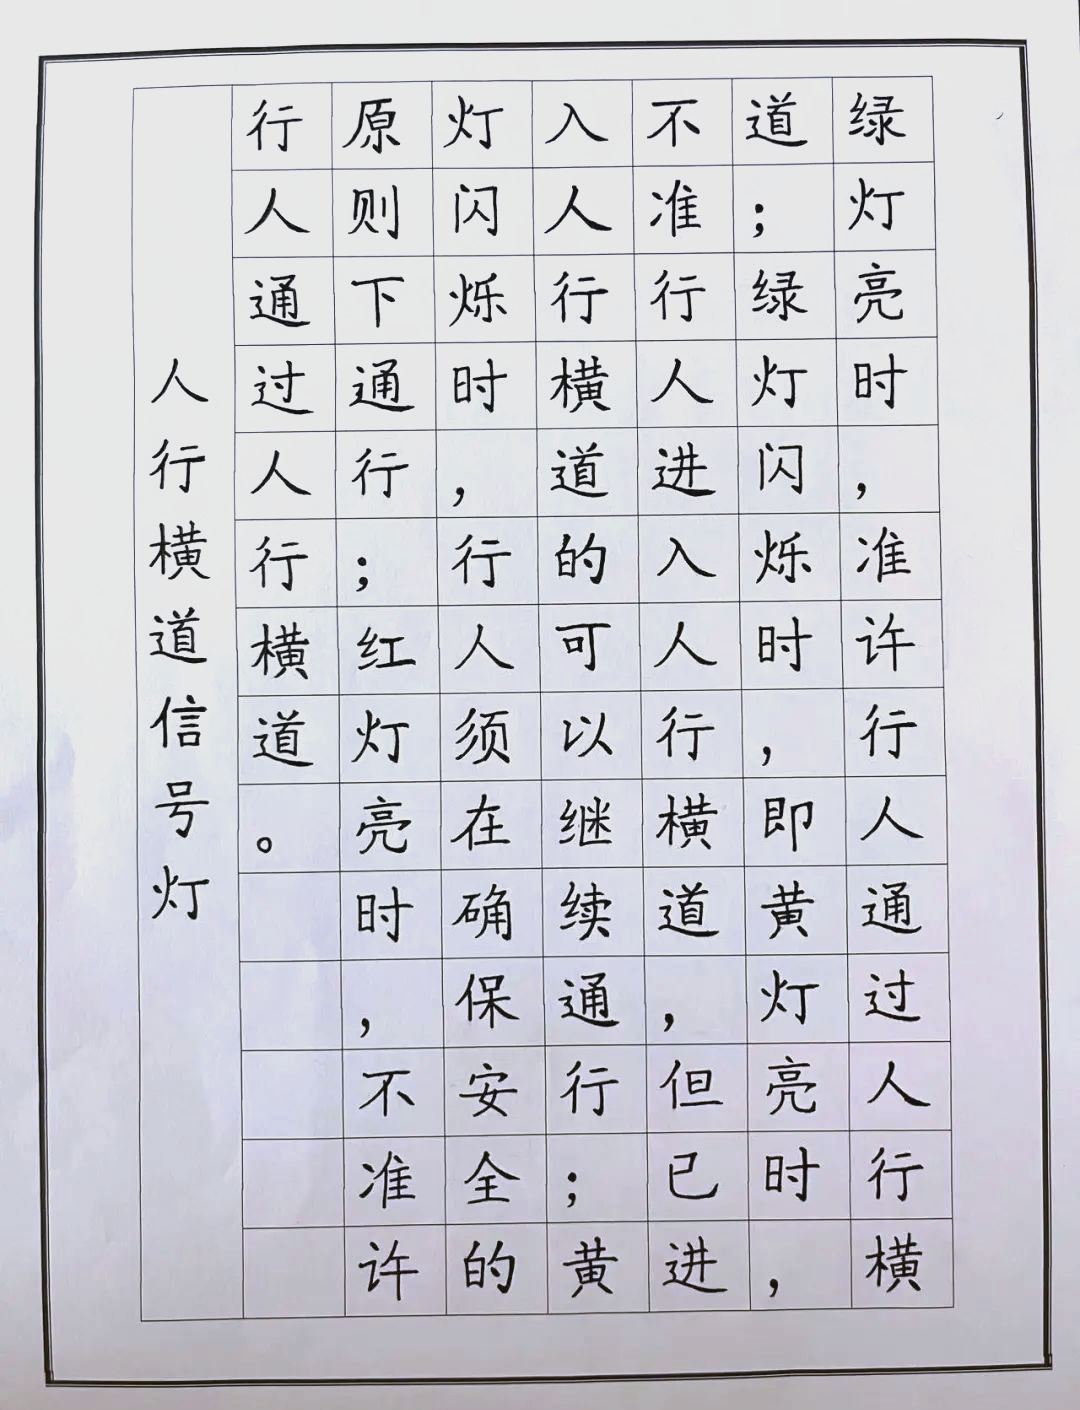 绿灯亮时，准许行人通过人行横
道；绿灯闪烁时，即黄灯亮时，
不准行人进入人行横道，但已进
入人行横道的可以继续通行；黄
灯闪烁时，行人须在确保安全的
原则下通行；红灯亮时，不准许
行人通过人行横道。
人行横道信号灯